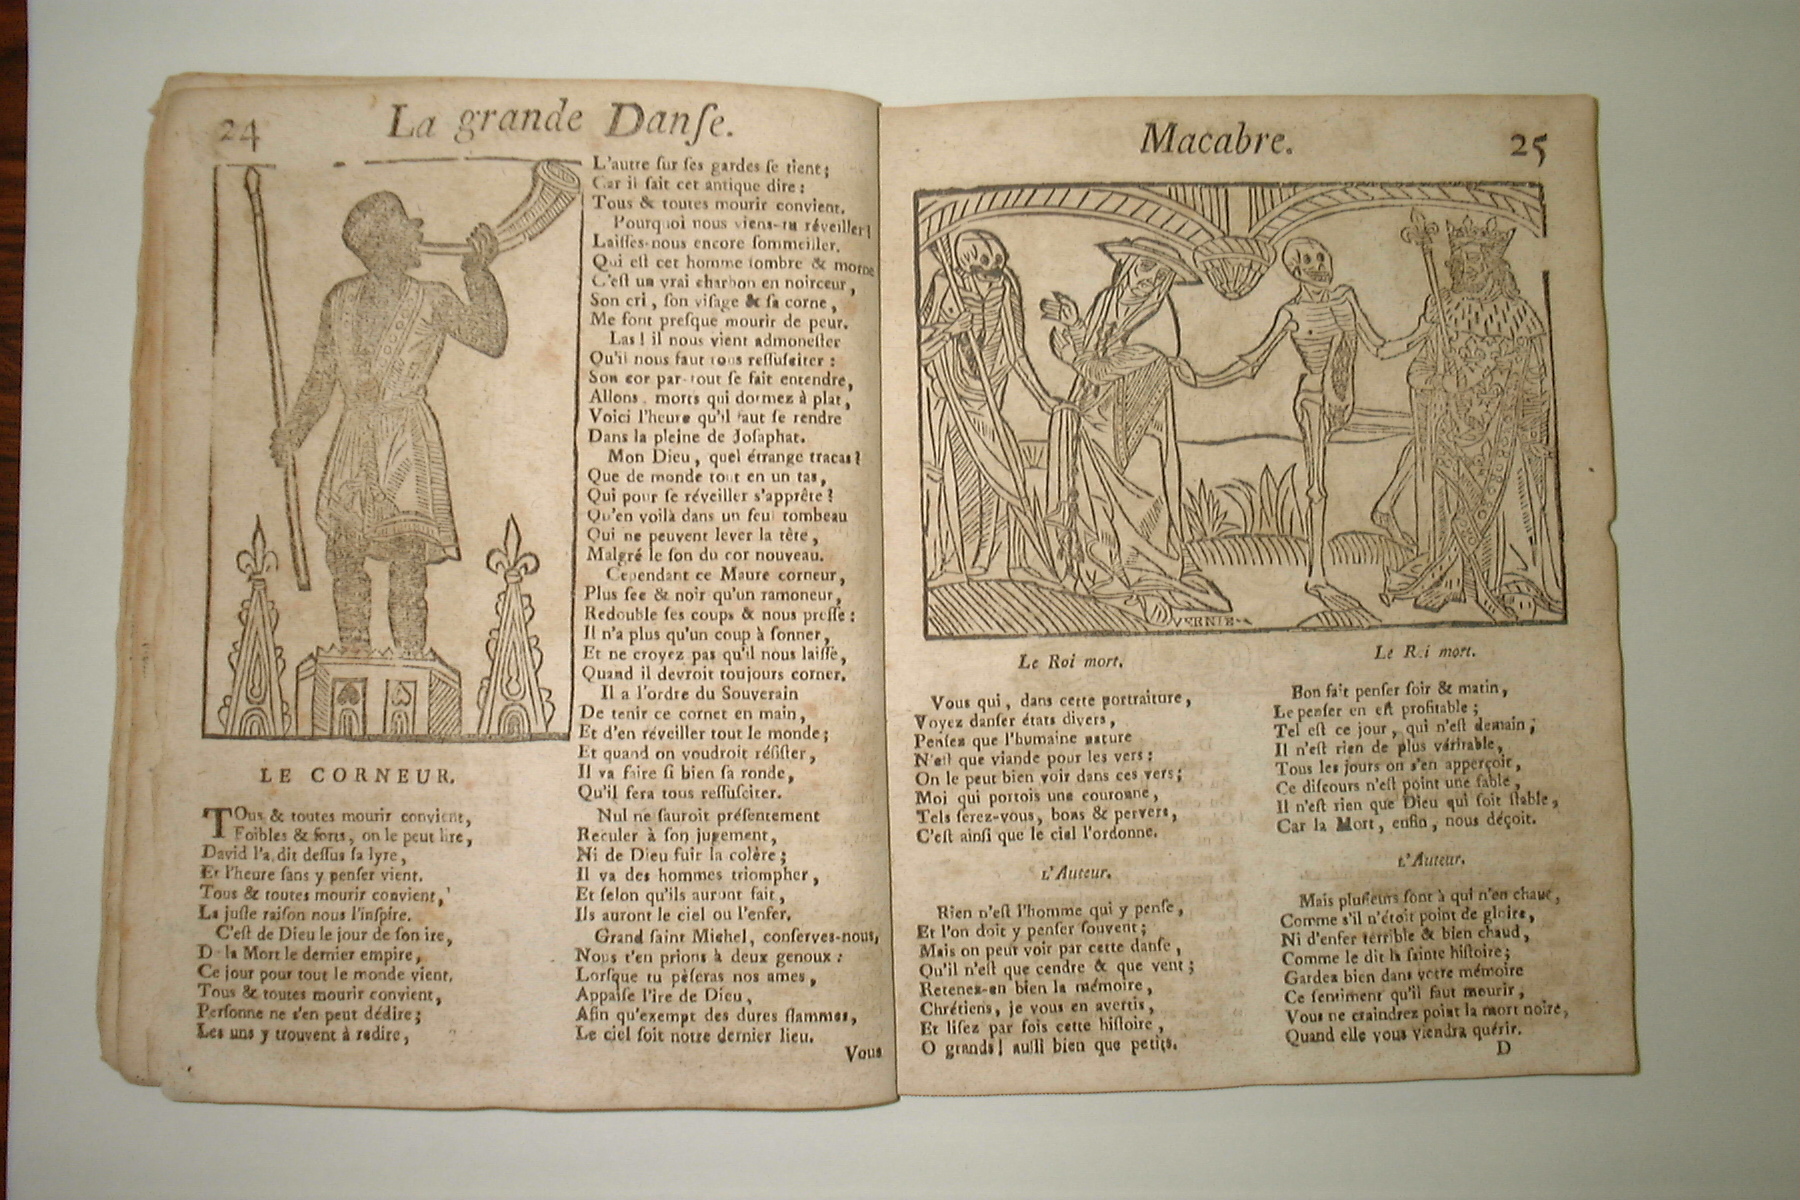 24
La grande Danſe.
LE CORNEUR.
TOus & toutes mourir convient,
Foibles & forts, on le peut lire,
David l'a dit deſſus ſa lyre,
Et l'heure ſans y penſer vient.
Tous & toutes mourir convient,
La juſte raiſon nous l'inſpire.
C'eſt de Dieu le jour de ſon ire,
D la Mort le dernier empire,
Ce jour pour tout le monde vient.
Tous & toutes mourir convient,
Perſonne ne s'en peut dédire;
Les uns y trouvent à redire,
L'autre ſur ſes gardes ſe tient;
Car il ſait cet antique dire:
Tous & toutes mourir convient.
Pourquoi nous viens-tu réveiller!
Laiſſes-nous encore ſommeiller.
Qui eſt cet homme ſombre & morne
C'eſt un vrai charbon en noirceur,
Son cri, ſon viſage & ſa corne,
Me font preſque mourir de peur.
Las! il nous vient admoneſter
Qu'il nous faut tous reſſuſciter:
Son cor par-tout ſe fait entendre,
Allons, morts qui dormez à plat,
Voici l'heure qu'il faut ſe rendre
Dans la pleine de Joſaphat.
Mon Dieu, quel étrange tracas?
Que de monde tout en un tas,
Qui pour ſe réveiller s'apprête?
Qu'en voilà dans un ſeul tombeau
Qui ne peuvent lever la tête,
Malgré le ſon du cor nouveau.
Cependant ce Maure corneur,
Plus ſec & noir qu'un ramoneur,
Redouble ſes coups & nous preſſe:
Il n'a plus qu'un coup à ſonner,
Et ne croyez pas qu'il nous laiſſe,
Quand il devroit toujours corner.
Il a l'ordre du Souverain
De tenir ce cornet en main,
Et d'en réveiller tout le monde;
Et quand on voudroit réſiſter,
Il va faire ſi bien ſa ronde,
Qu'il ſera tous reſſuſciter.
Nul ne ſauroit préſentement
Reculer à ſon jugement,
Ni de Dieu fuir la colère;
Il va des hommes triompher,
Et ſelon qu'ils auront fait,
Ils auront le ciel ou l'enfer.
Grand ſaint Michel, conſerves-nous,
Nous t'en prions à deux genoux:
Lorſque tu pèſeras nos ames,
Appaiſe l'ire de Dieu,
Afin qu'exempt des dures flammes,
Le ciel ſoit notre dernier lieu.
Vous
Macabre.
25
Le Roi mort.
Vous qui, dans cette portraiture,
Voyez danſer états divers,
Penſez que l'humaine nature
N'eſt que viande pour les vers:
On le peut bien voir dans ces vers;
Moi qui portois une couronne,
Tels ſerez-vous, bons & pervers,
C'eſt ainſi que le ciel l'ordonne.
L'Auteur.
Rien n'eſt l'homme qui y penſe,
Et l'on doit y penſer ſouvent;
Mais on peut voir par cette danſe,
Qu'il n'eſt que cendre & que vent;
Retenez-en bien la mémoire,
Chrétiens, je vous en avertis,
Et liſez par fois cette hiſtoire,
O grands! auſſi bien que petits.
Le Roi mort.
Bon fait penſer ſoir & matin,
Le penſer en eſt profitable;
Tel eſt ce jour, qui n'eſt demain;
Il n'eſt rien de plus véritable,
Tous les jours on s'en apperçoit,
Ce diſcours n'eſt point une fable,
Il n'eſt rien que Dieu qui ſoit ſtable,
Car la Mort, enfin, nous déçoit.
L'Auteur.
Mais pluſieurs ſont à qui n'en chaut,
Comme s'il n'étoit point de gloire,
Ni d'enfer terrible & bien chaud,
Comme le dit la ſainte hiſtoire;
Gardez bien dans votre mémoire
Ce ſentiment qu'il faut mourir,
Vous ne craindrez point la mort noire,
Quand elle vous viendra quérir.
D